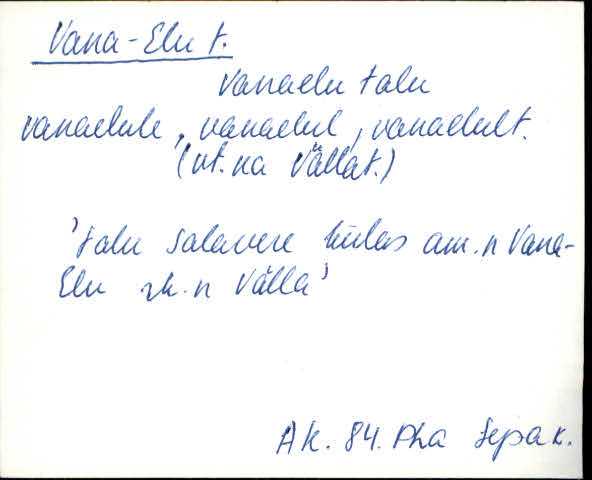 Vana-Elu t.
vanaelu talu
vanaelule, vanaelul, vanaelult.
(vt. ka Välla t.)
'talu Salavere külas am. n Vana-
Elu rk. n Välla'
AK. 84. Pha Sepa k.